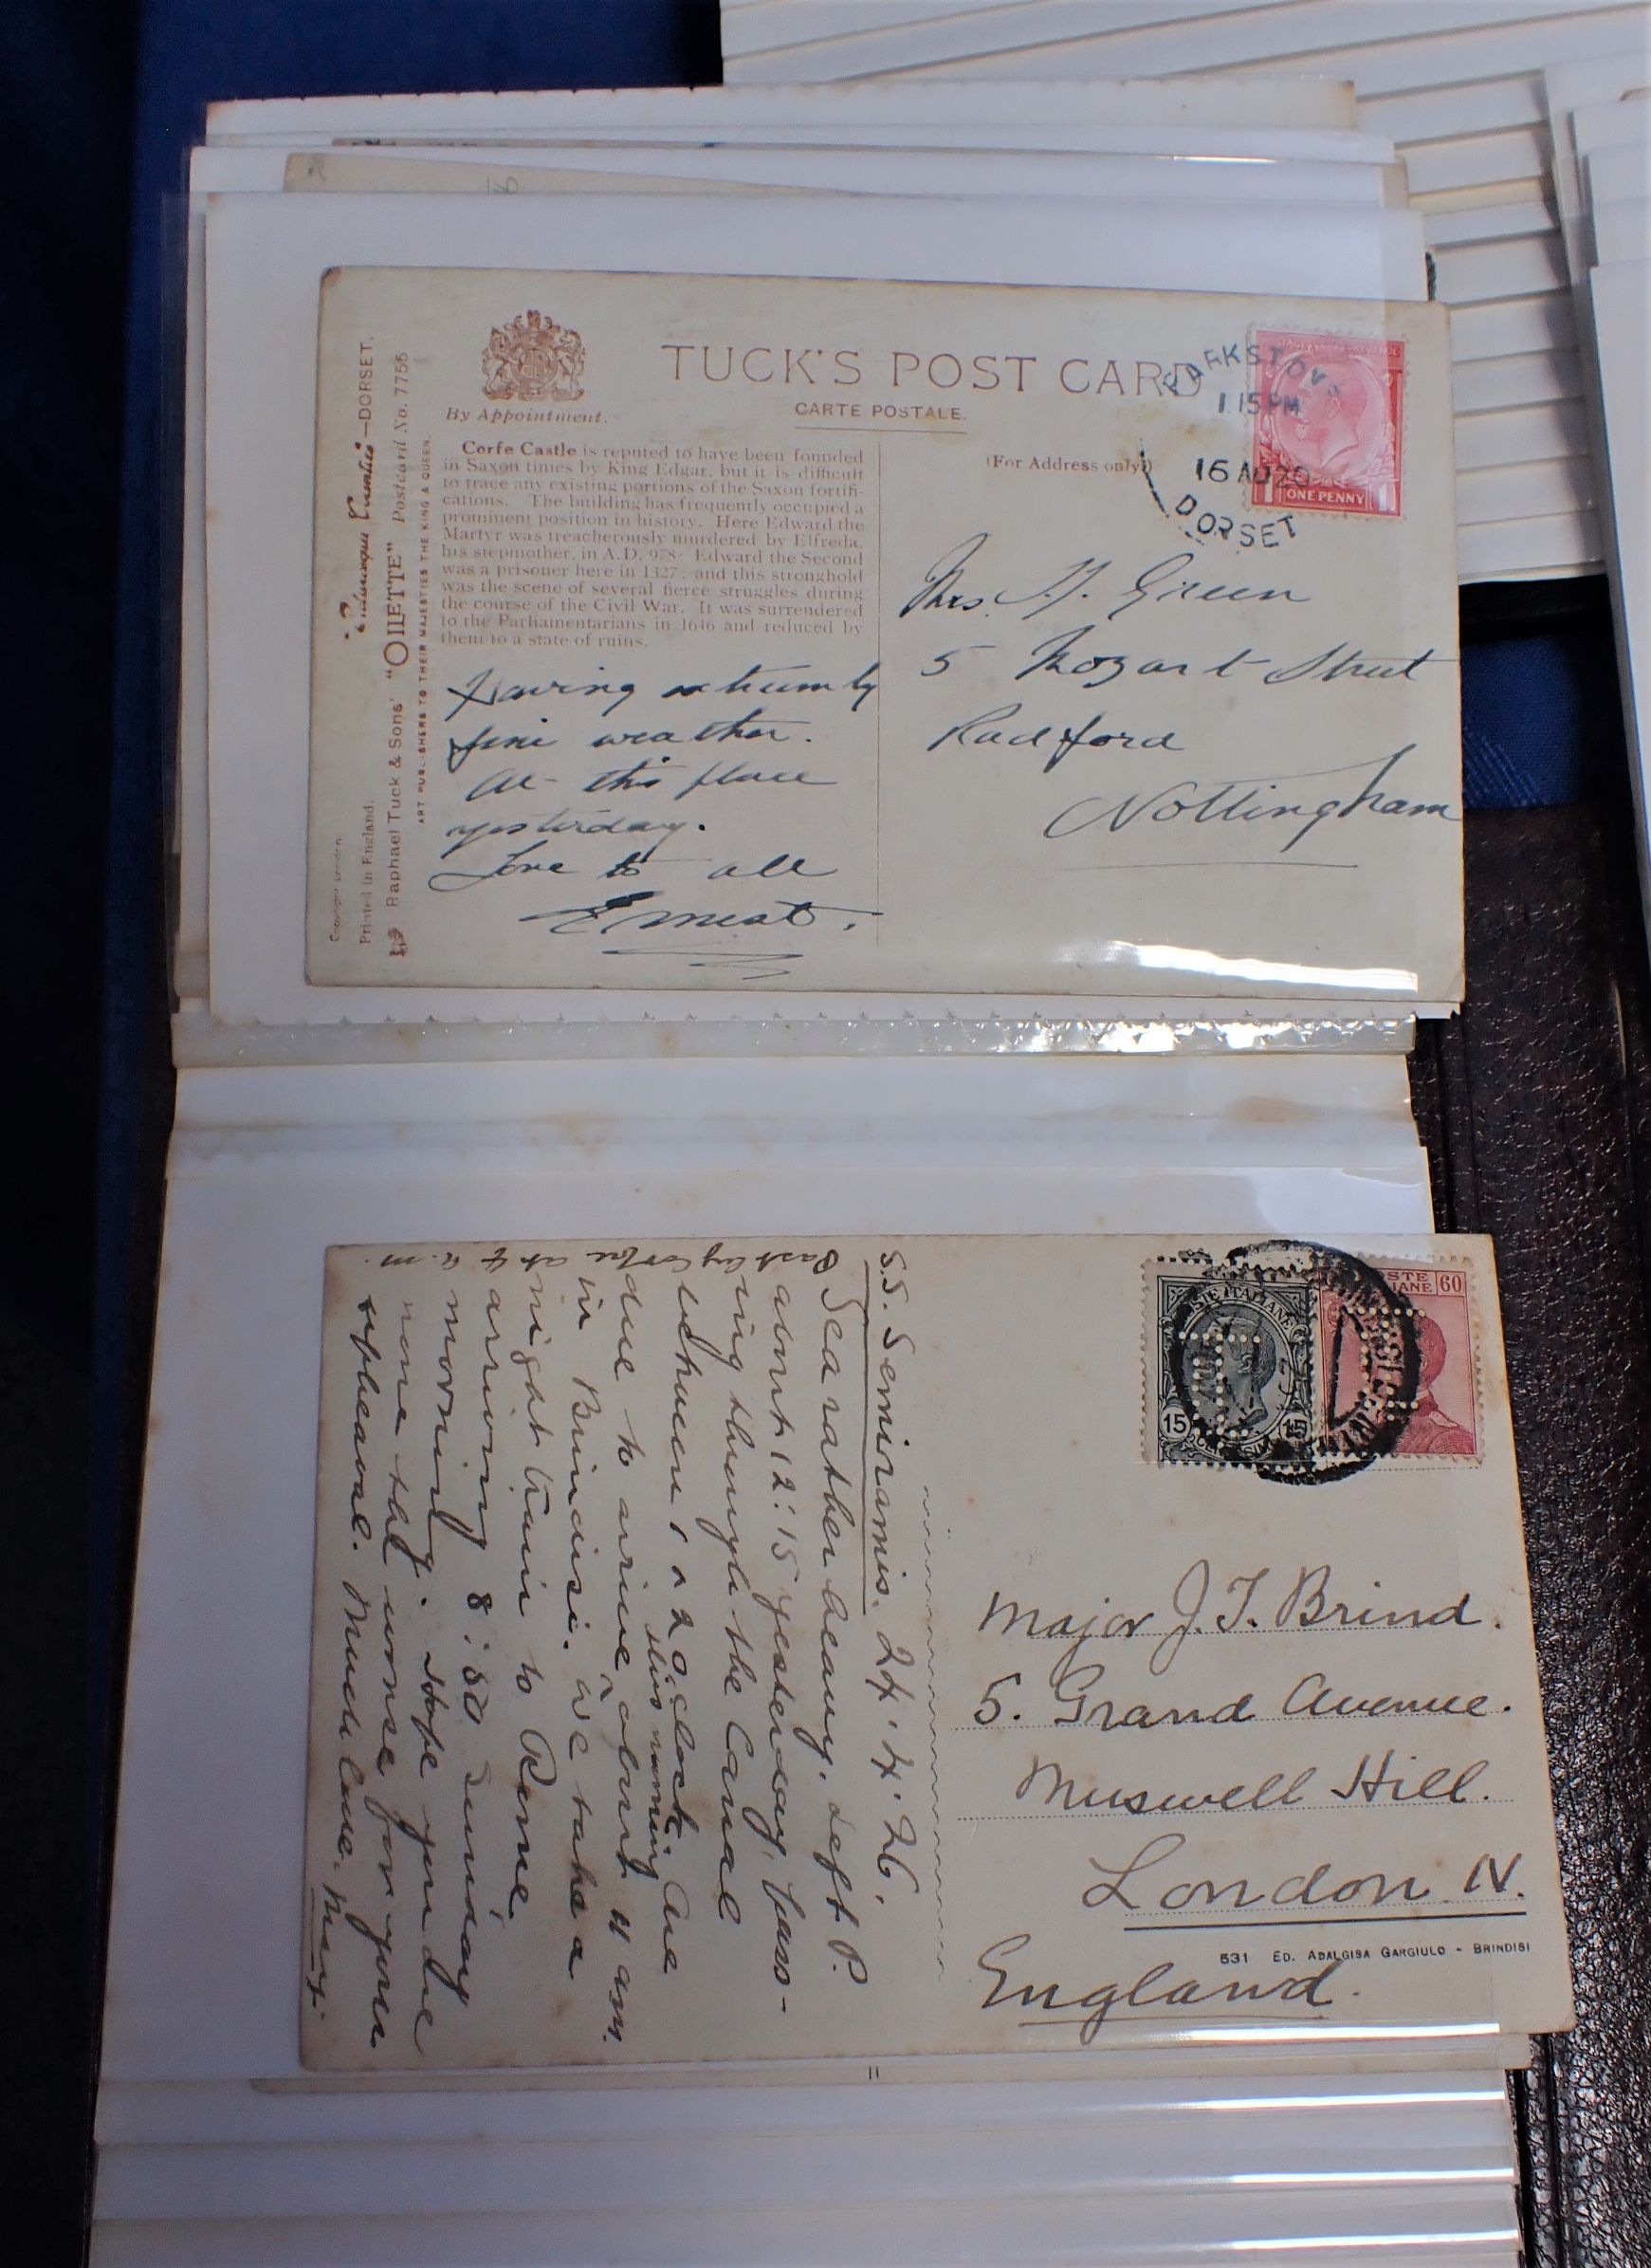 TUCK'S POST CARD
CARTE POSTALE.
By Appointment.
(For Address only.)
PARKSTONE
1.15 PM
16 AU 20
DORSET
ONE PENNY
1 1
Corfe Castle is reputed to have been founded
in Saxon times by King Edgar, but it is difficult
to trace any existing portions of the Saxon fortifi-
cations. The building has frequently occupied a
prominent position in history. Here Edward the
Martyr was treacherously murdered by Elfreda,
his stepmother, in A.D. 978; Edward the Second
was a prisoner here in 1327; and this stronghold
was the scene of several fierce struggles during
the course of the Civil War. It was surrendered
to the Parliamentarians in 1646 and reduced by
them to a state of ruins.
Having extremely
fine weather.
At this place
yesterday.
Love to all
Ernest.
Mrs. H. Green
5 Mozart Street
Radford
Nottingham
Picturesque Counties—DORSET.
Raphael Tuck & Sons' "OILETTE" Postcard No. 7755
ART PUBLISHERS TO THEIR MAJESTIES THE KING & QUEEN.
Printed in England.
Copyright London
S.S. Semiramis. 24.4.26.
Sea rather heavy. Left P.
about 12:15 yesterday, pass-
ing through the Canal
between 1 & 2 o'clock. Are
due to arrive this morning about 11 am.
in Brindisi. We take a
night train to Rome,
arriving 8:50 Sunday
morning. Hope you are
none the worse for your
upheaval. Much love. May.
Past by Corfu at 4 a.m.
POSTE ITALIANE
15 15
60
Major J. T. Brind.
5. Grand Avenue.
Muswell Hill.
London. N.
England.
531 ED. ADALGISA GARGIULO - BRINDISI